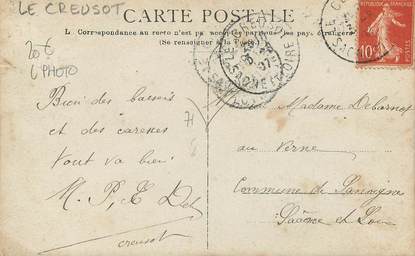 LE CREUSOT
CARTE POSTALE
L. Correspondance au recto n'est pas acceptée par tous les pays étrangers
(Se renseigner à la Poste)
20 €
6 PHOTO
REPUBLIQUE FRANÇAISE
10
Bien des baisers
et des caresses
tout va bien
M. P. E Deb
Creusot
71
Madame Debarnot
au Verne
Commune de
Saône et Loire